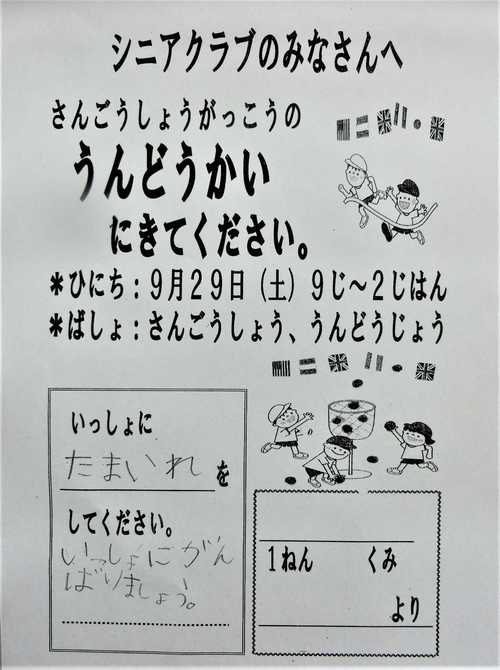 シニアクラブのみなさんへ
さんごうしょうがっこうの
うんどうかい
にきてください。
＊ひにち：９月２９日（土）９じ～２じはん
＊ばしょ：さんごうしょう、うんどうじょう
いっしょに
たまいれを
してください。
いっしょにがん
ばりましょう。
１ねん　くみ
より